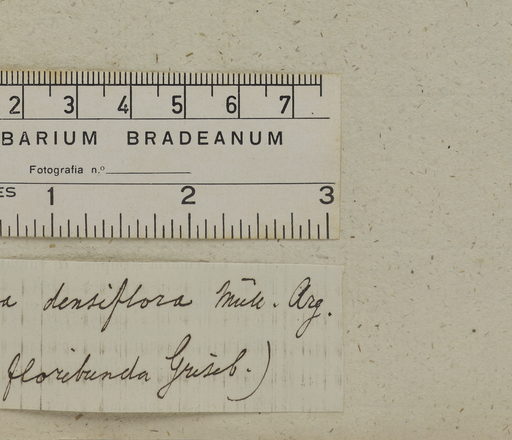 2 3 4 5 6 7
BARIUM BRADEANUM
Fotografia n.º
ES 1 2 3
a densiflora Müll. Arg.
floribunda Griseb.)